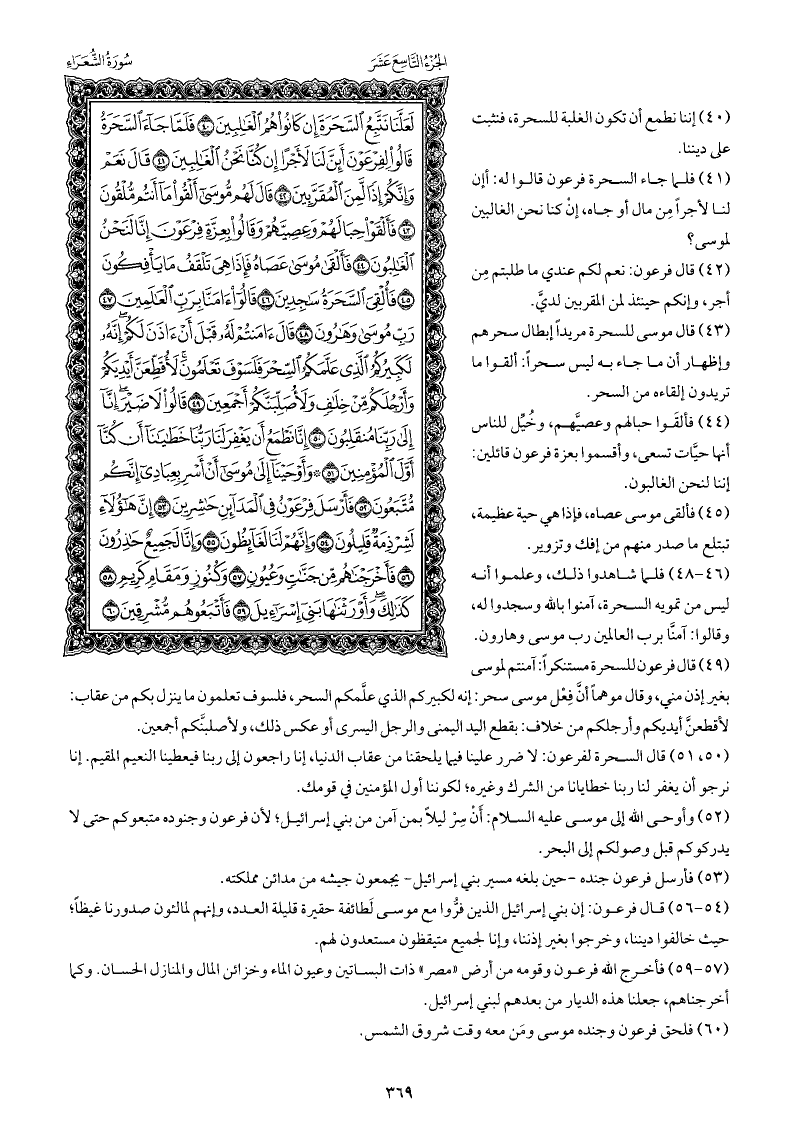 الجزء التاسع عشر
سورة الشعراء
لَعَلَّنَا نَتَّبِعُ السَّحَرَةَ إِن كَانُوا۟ هُمُ الْغَالِبِينَ ۝٤٠ فَلَمَّا جَاءَ السَّحَرَةُ
قَالُوا۟ لِفِرْعَوْنَ أَئِنَّ لَنَا لَأَجْرًا إِن كُنَّا نَحْنُ الْغَالِبِينَ ۝٤١ قَالَ نَعَمْ
وَإِنَّكُمْ إِذًا لَّمِنَ الْمُقَرَّبِينَ ۝٤٢ قَالَ لَهُم مُّوسَىٰ أَلْقُوا۟ مَا أَنتُم مُّلْقُونَ
۝٤٣ فَأَلْقَوْا۟ حِبَالَهُمْ وَعِصِيَّهُمْ وَقَالُوا۟ بِعِزَّةِ فِرْعَوْنَ إِنَّا لَنَحْنُ
الْغَالِبُونَ ۝٤٤ فَأَلْقَىٰ مُوسَىٰ عَصَاهُ فَإِذَا هِيَ تَلْقَفُ مَا يَأْفِكُونَ
۝٤٥ فَأُلْقِيَ السَّحَرَةُ سَاجِدِينَ ۝٤٦ قَالُوا۟ ءَامَنَّا بِرَبِّ الْعَالَمِينَ ۝٤٧
رَبِّ مُوسَىٰ وَهَارُونَ ۝٤٨ قَالَ ءَامَنتُمْ لَهُ قَبْلَ أَنْ ءَاذَنَ لَكُمْ إِنَّهُ
لَكَبِيرُكُمُ الَّذِي عَلَّمَكُمُ السِّحْرَ فَلَسَوْفَ تَعْلَمُونَ لَأُقَطِّعَنَّ أَيْدِيَكُمْ
وَأَرْجُلَكُم مِّنْ خِلَافٍ وَلَأُصَلِّبَنَّكُمْ أَجْمَعِينَ ۝٤٩ قَالُوا۟ لَا ضَيْرَ إِنَّا
إِلَىٰ رَبِّنَا مُنقَلِبُونَ ۝٥٠ إِنَّا نَطْمَعُ أَن يَغْفِرَ لَنَا رَبُّنَا خَطَايَانَا أَن كُنَّا
أَوَّلَ الْمُؤْمِنِينَ ۝٥١ ۞ وَأَوْحَيْنَا إِلَىٰ مُوسَىٰ أَنْ أَسْرِ بِعِبَادِي إِنَّكُم
مُّتَّبَعُونَ ۝٥٢ فَأَرْسَلَ فِرْعَوْنُ فِي الْمَدَائِنِ حَاشِرِينَ ۝٥٣ إِنَّ هَؤُلَاءِ
لَشِرْذِمَةٌ قَلِيلُونَ ۝٥٤ وَإِنَّهُمْ لَنَا لَغَائِظُونَ ۝٥٥ وَإِنَّا لَجَمِيعٌ حَاذِرُونَ
۝٥٦ فَأَخْرَجْنَاهُم مِّن جَنَّاتٍ وَعُيُونٍ ۝٥٧ وَكُنُوزٍ وَمَقَامٍ كَرِيمٍ ۝٥٨
كَذَٰلِكَ وَأَوْرَثْنَاهَا بَنِي إِسْرَائِيلَ ۝٥٩ فَأَتْبَعُوهُم مُّشْرِقِينَ ۝٦٠
(٤٠) إننا نطمع أن تكون الغلبة للسحرة، فنثبت
على ديننا.
(٤١) فلما جاء السحرة فرعون قالوا له: أإن
لنا لأجراً مِن مال أو جاه، إنْ كنا نحن الغالبين
لموسى؟
(٤٢) قال فرعون: نعم لكم عندي ما طلبتم مِن
أجر، وإنكم حينئذ لمن المقربين لديَّ.
(٤٣) قال موسى للسحرة مريداً إبطال سحرهم
وإظهار أن ما جاء به ليس سحراً: ألقوا ما
تريدون إلقاءه من السحر.
(٤٤) فألقَوا حبالهم وعصيَّهم، وخُيِّل للناس
أنها حيَّات تسعى، وأقسموا بعزة فرعون قائلين:
إننا لنحن الغالبون.
(٤٥) فألقى موسى عصاه، فإذا هي حية عظيمة،
تبتلع ما صدر منهم من إفك وتزوير.
(٤٦-٤٨) فلما شاهدوا ذلك، وعلموا أنه
ليس من تمويه السحرة، آمنوا بالله وسجدوا له،
وقالوا: آمنَّا برب العالمين رب موسى وهارون.
(٤٩) قال فرعون للسحرة مستنكراً: آمنتم لموسى
بغير إذن مني، وقال موهماً أنَّ فِعْل موسى سحر: إنه لكبيركم الذي علَّمكم السحر، فلسوف تعلمون ما ينزل بكم من عقاب:
لأقطعنَّ أيديكم وأرجلكم من خلاف: بقطع اليد اليمنى والرجل اليسرى أو عكس ذلك، ولأصلبنَّكم أجمعين.
(٥٠، ٥١) قال السحرة لفرعون: لا ضرر علينا فيما يلحقنا من عقاب الدنيا، إنا راجعون إلى ربنا فيعطينا النعيم المقيم. إنا
نرجو أن يغفر لنا ربنا خطايانا من الشرك وغيره؛ لكوننا أول المؤمنين في قومك.
(٥٢) وأوحى الله إلى موسى عليه السلام: أَنْ سِرْ ليلاً بمن آمن من بني إسرائيل؛ لأن فرعون وجنوده متبعوكم حتى لا
يدركوكم قبل وصولكم إلى البحر.
(٥٣) فأرسل فرعون جنده -حين بلغه مسير بني إسرائيل- يجمعون جيشه من مدائن مملكته.
(٥٤-٥٦) قال فرعون: إن بني إسرائيل الذين فرُّوا مع موسى لَطائفة حقيرة قليلة العدد، وإنهم لمالئون صدورنا غيظاً؛
حيث خالفوا ديننا، وخرجوا بغير إذننا، وإنا لجميع متيقظون مستعدون لهم.
(٥٧-٥٩) فأخرج الله فرعون وقومه من أرض «مصر» ذات البساتين وعيون الماء وخزائن المال والمنازل الحسان. وكما
أخرجناهم، جعلنا هذه الديار من بعدهم لبني إسرائيل.
(٦٠) فلحق فرعون وجنده موسى ومَن معه وقت شروق الشمس.
٣٦٩